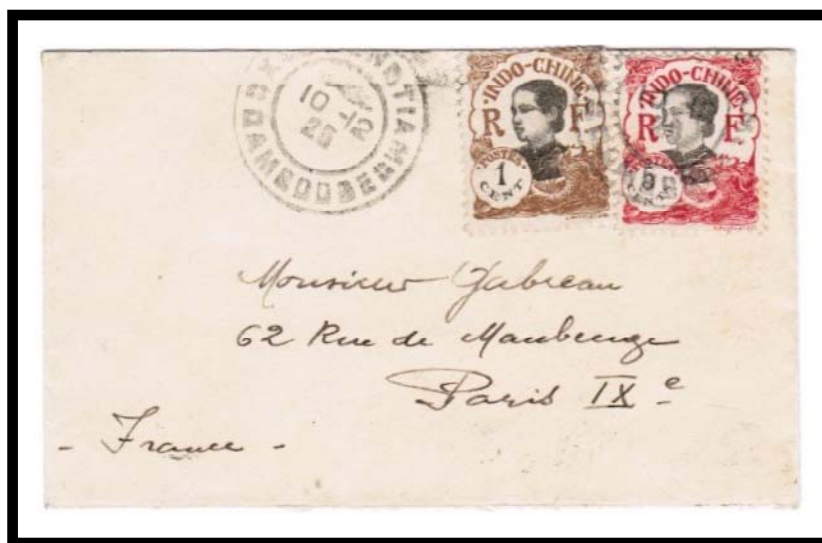 10-12
26
CAMBODGE
INDO-CHINE
R F
POSTES
1
CENT
INDO-CHINE
R F
POSTES
CENTS
Monsieur Gabreau
62 Rue de Maubeuge
Paris IXe
- France -